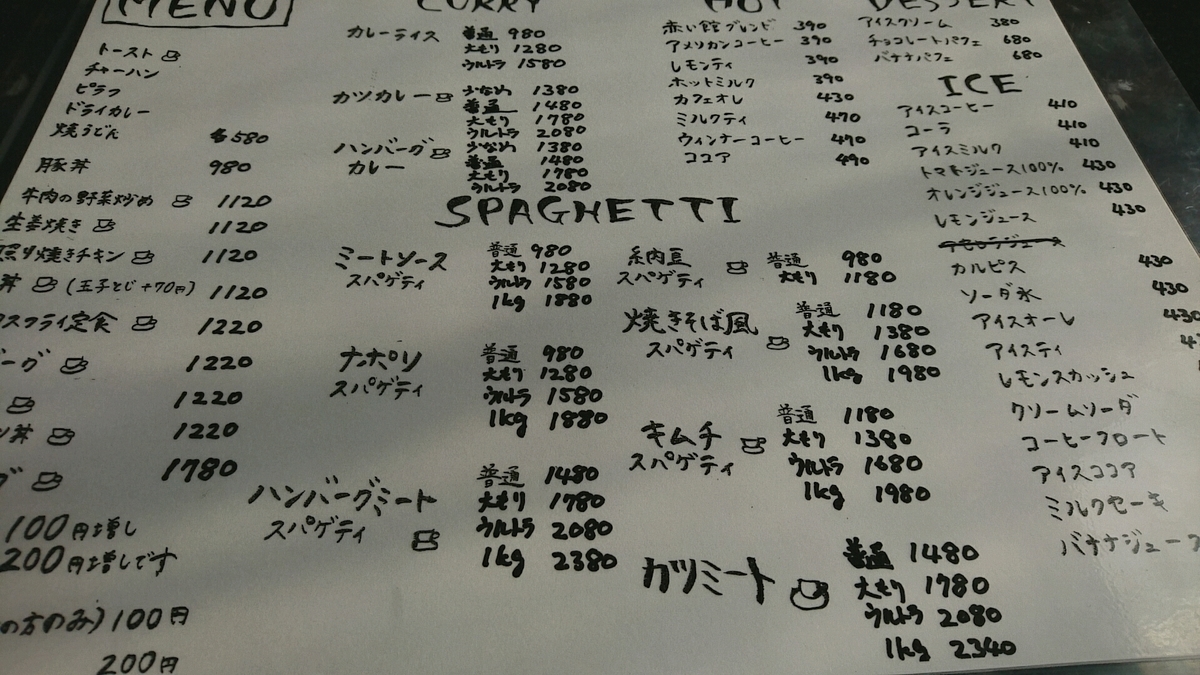 MENU
トースト
チャーハン
ピラフ
ドライカレー
焼うどん 580
豚丼 980
牛肉の野菜炒め 1120
生姜焼き 1120
照り焼きチキン 1120
丼 (玉子とじ+70円) 1120
フライ定食 1220
バーグ 1220
1220
丼 1220
グ 1780
100円増し
200円増しです
の方のみ) 100円
200円
CURRY
カレーライス 普通 980
大もり 1280
ウルトラ 1580
カツカレー 少なめ 1380
普通 1480
大もり 1780
ウルトラ 2080
ハンバーグ 少なめ 1380
カレー 普通 1480
大もり 1780
ウルトラ 2080
HOT
赤い館ブレンド 390
アメリカンコーヒー 390
レモンティ 390
ホットミルク 390
カフェオレ 430
ミルクティ 470
ウィンナーコーヒー 490
ココア 490
DESSERT
アイスクリーム 380
チョコレートパフェ 680
バナナパフェ 680
ICE
アイスコーヒー 410
コーラ 410
アイスミルク 410
トマトジュース100% 430
オレンジジュース100% 430
レモンジュース 430
カルピス 430
ソーダ水 430
アイスオーレ 430
アイスティ
レモンスカッシュ
クリームソーダ
コーヒーフロート
アイスココア
ミルクセーキ
バナナジュース
SPAGHETTI
ミートソース 普通 980
スパゲティ 大もり 1280
ウルトラ 1580
1kg 1880
ナポリ 普通 980
スパゲティ 大もり 1280
ウルトラ 1580
1kg 1880
ハンバーグミート 普通 1480
スパゲティ 大もり 1780
ウルトラ 2080
1kg 2380
納豆 普通 980
スパゲティ 大もり 1180
焼きそば風 普通 1180
スパゲティ 大もり 1380
ウルトラ 1680
1kg 1980
キムチ 普通 1180
スパゲティ 大もり 1380
ウルトラ 1680
1kg 1980
カツミート 普通 1480
大もり 1780
ウルトラ 2080
1kg 2340